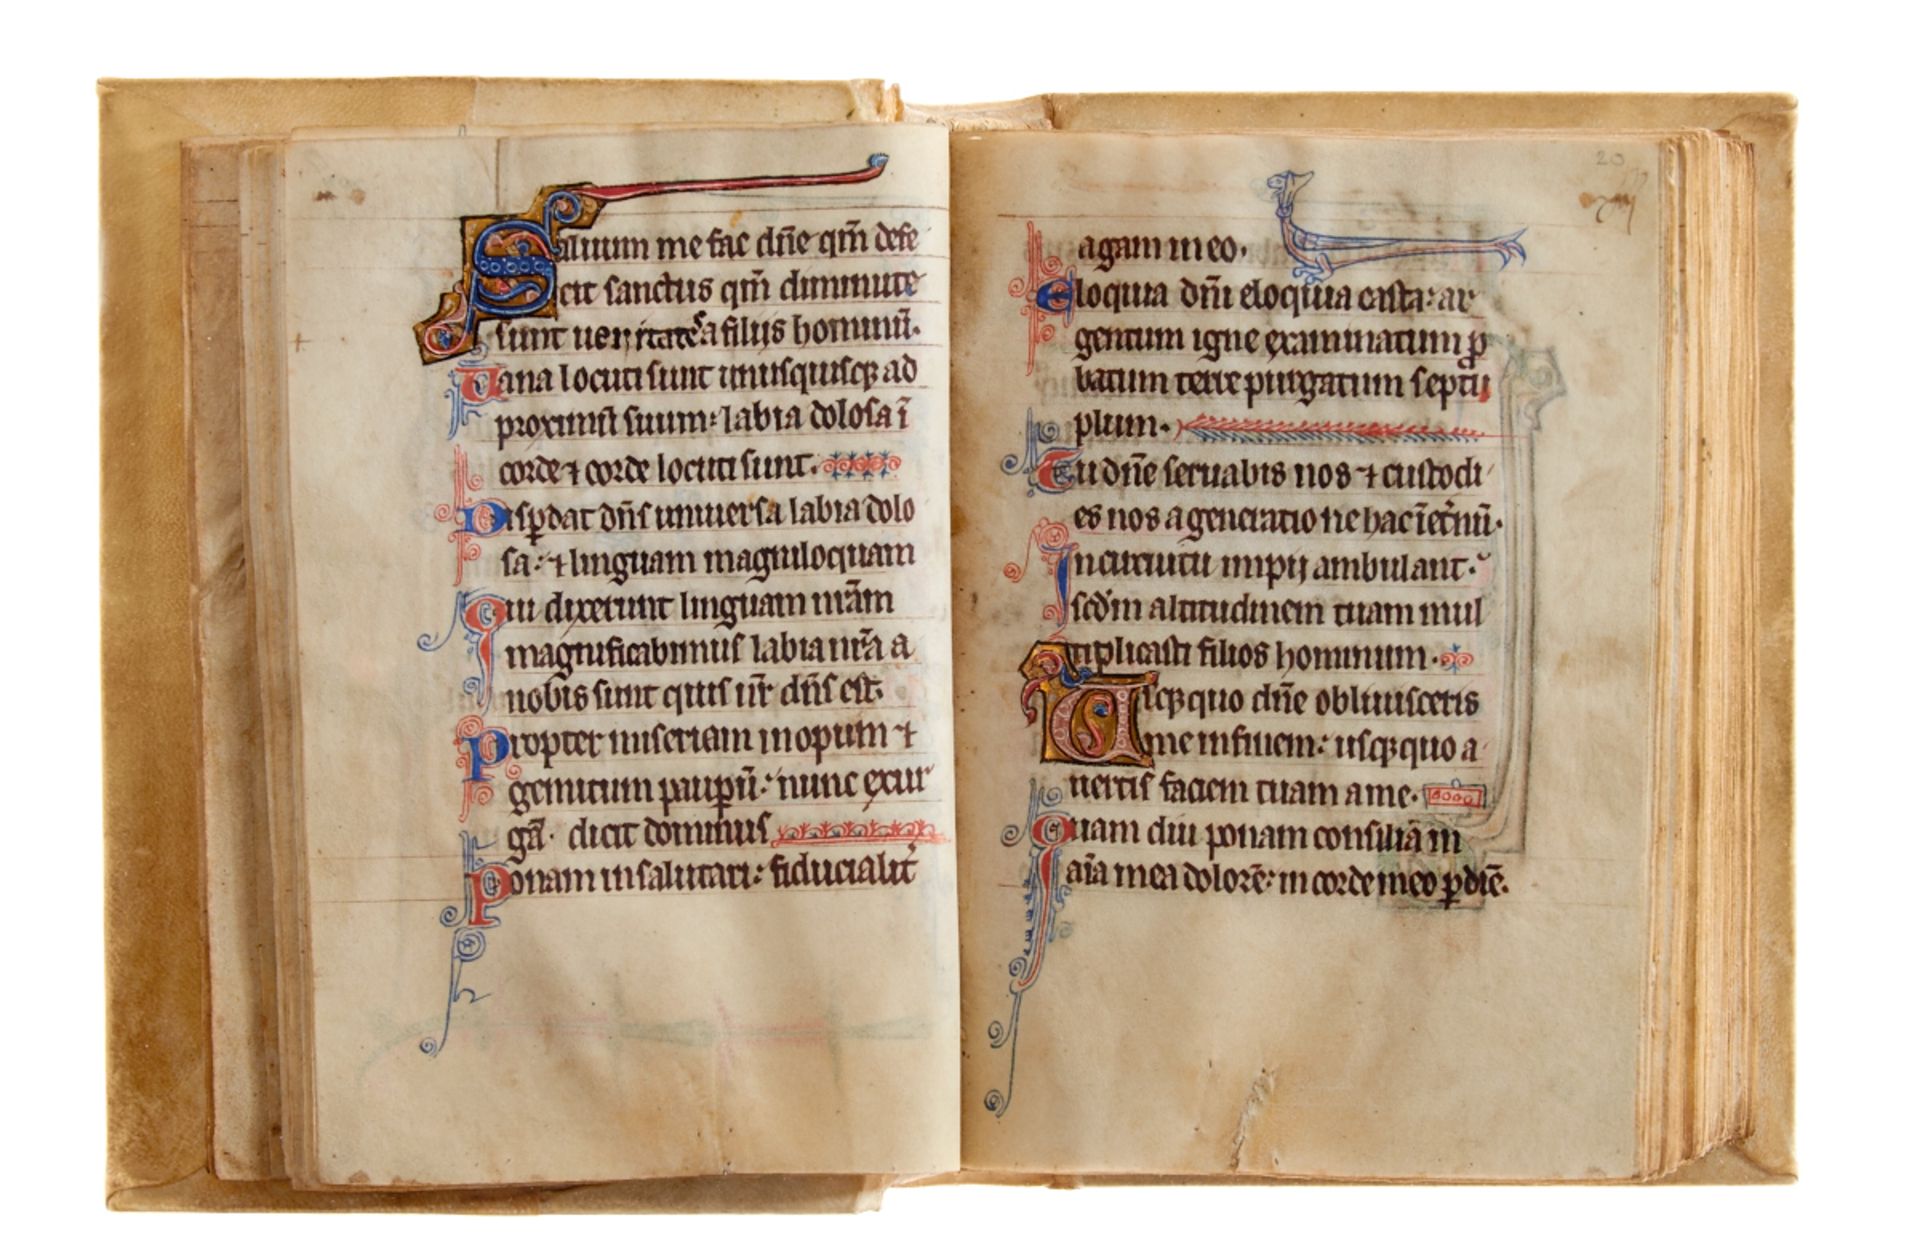 Saluum me fac dn̄e qm̄ defe
cit sanctus qm̄ diminute
sunt ueritates a filijs hominū.
Uana locuti sunt unusquisqꝫ ad
proximū suum: labia dolosa ī
corde ⁊ corde locuti sunt.
Disꝑdat dn̄s uniuersa labia dolo
sa: ⁊ linguam magniloquam
Qui dixerunt linguam nr̄am
magnificabimus labia nr̄a a
nobis sunt quis nr̄ dn̄s est.
Propter miseriam inopum ⁊
gemitum pauꝑū: nunc exur
gā. dicit dominus
Ponam in salutari: fiducialit᷑
20
agam in eo.
Eloquia dn̄i eloquia casta: ar
gentum igne examinatum ꝓ
batum terre purgatum septu
plum.
Tu dn̄e seruabis nos ⁊ custodi
es nos a generatione hac ī et᷑nū.
In circuitu impij ambulant.
scd̄m altitudinem tuam mul
tiplicasti filios hominum.
Usqꝫquo dn̄e obliuisceris
me in finem: usqꝫquo a
uertis faciem tuam a me.
Quam diu ponam consiliā in
aīa mea dolorē: in corde meo ꝑ diē.